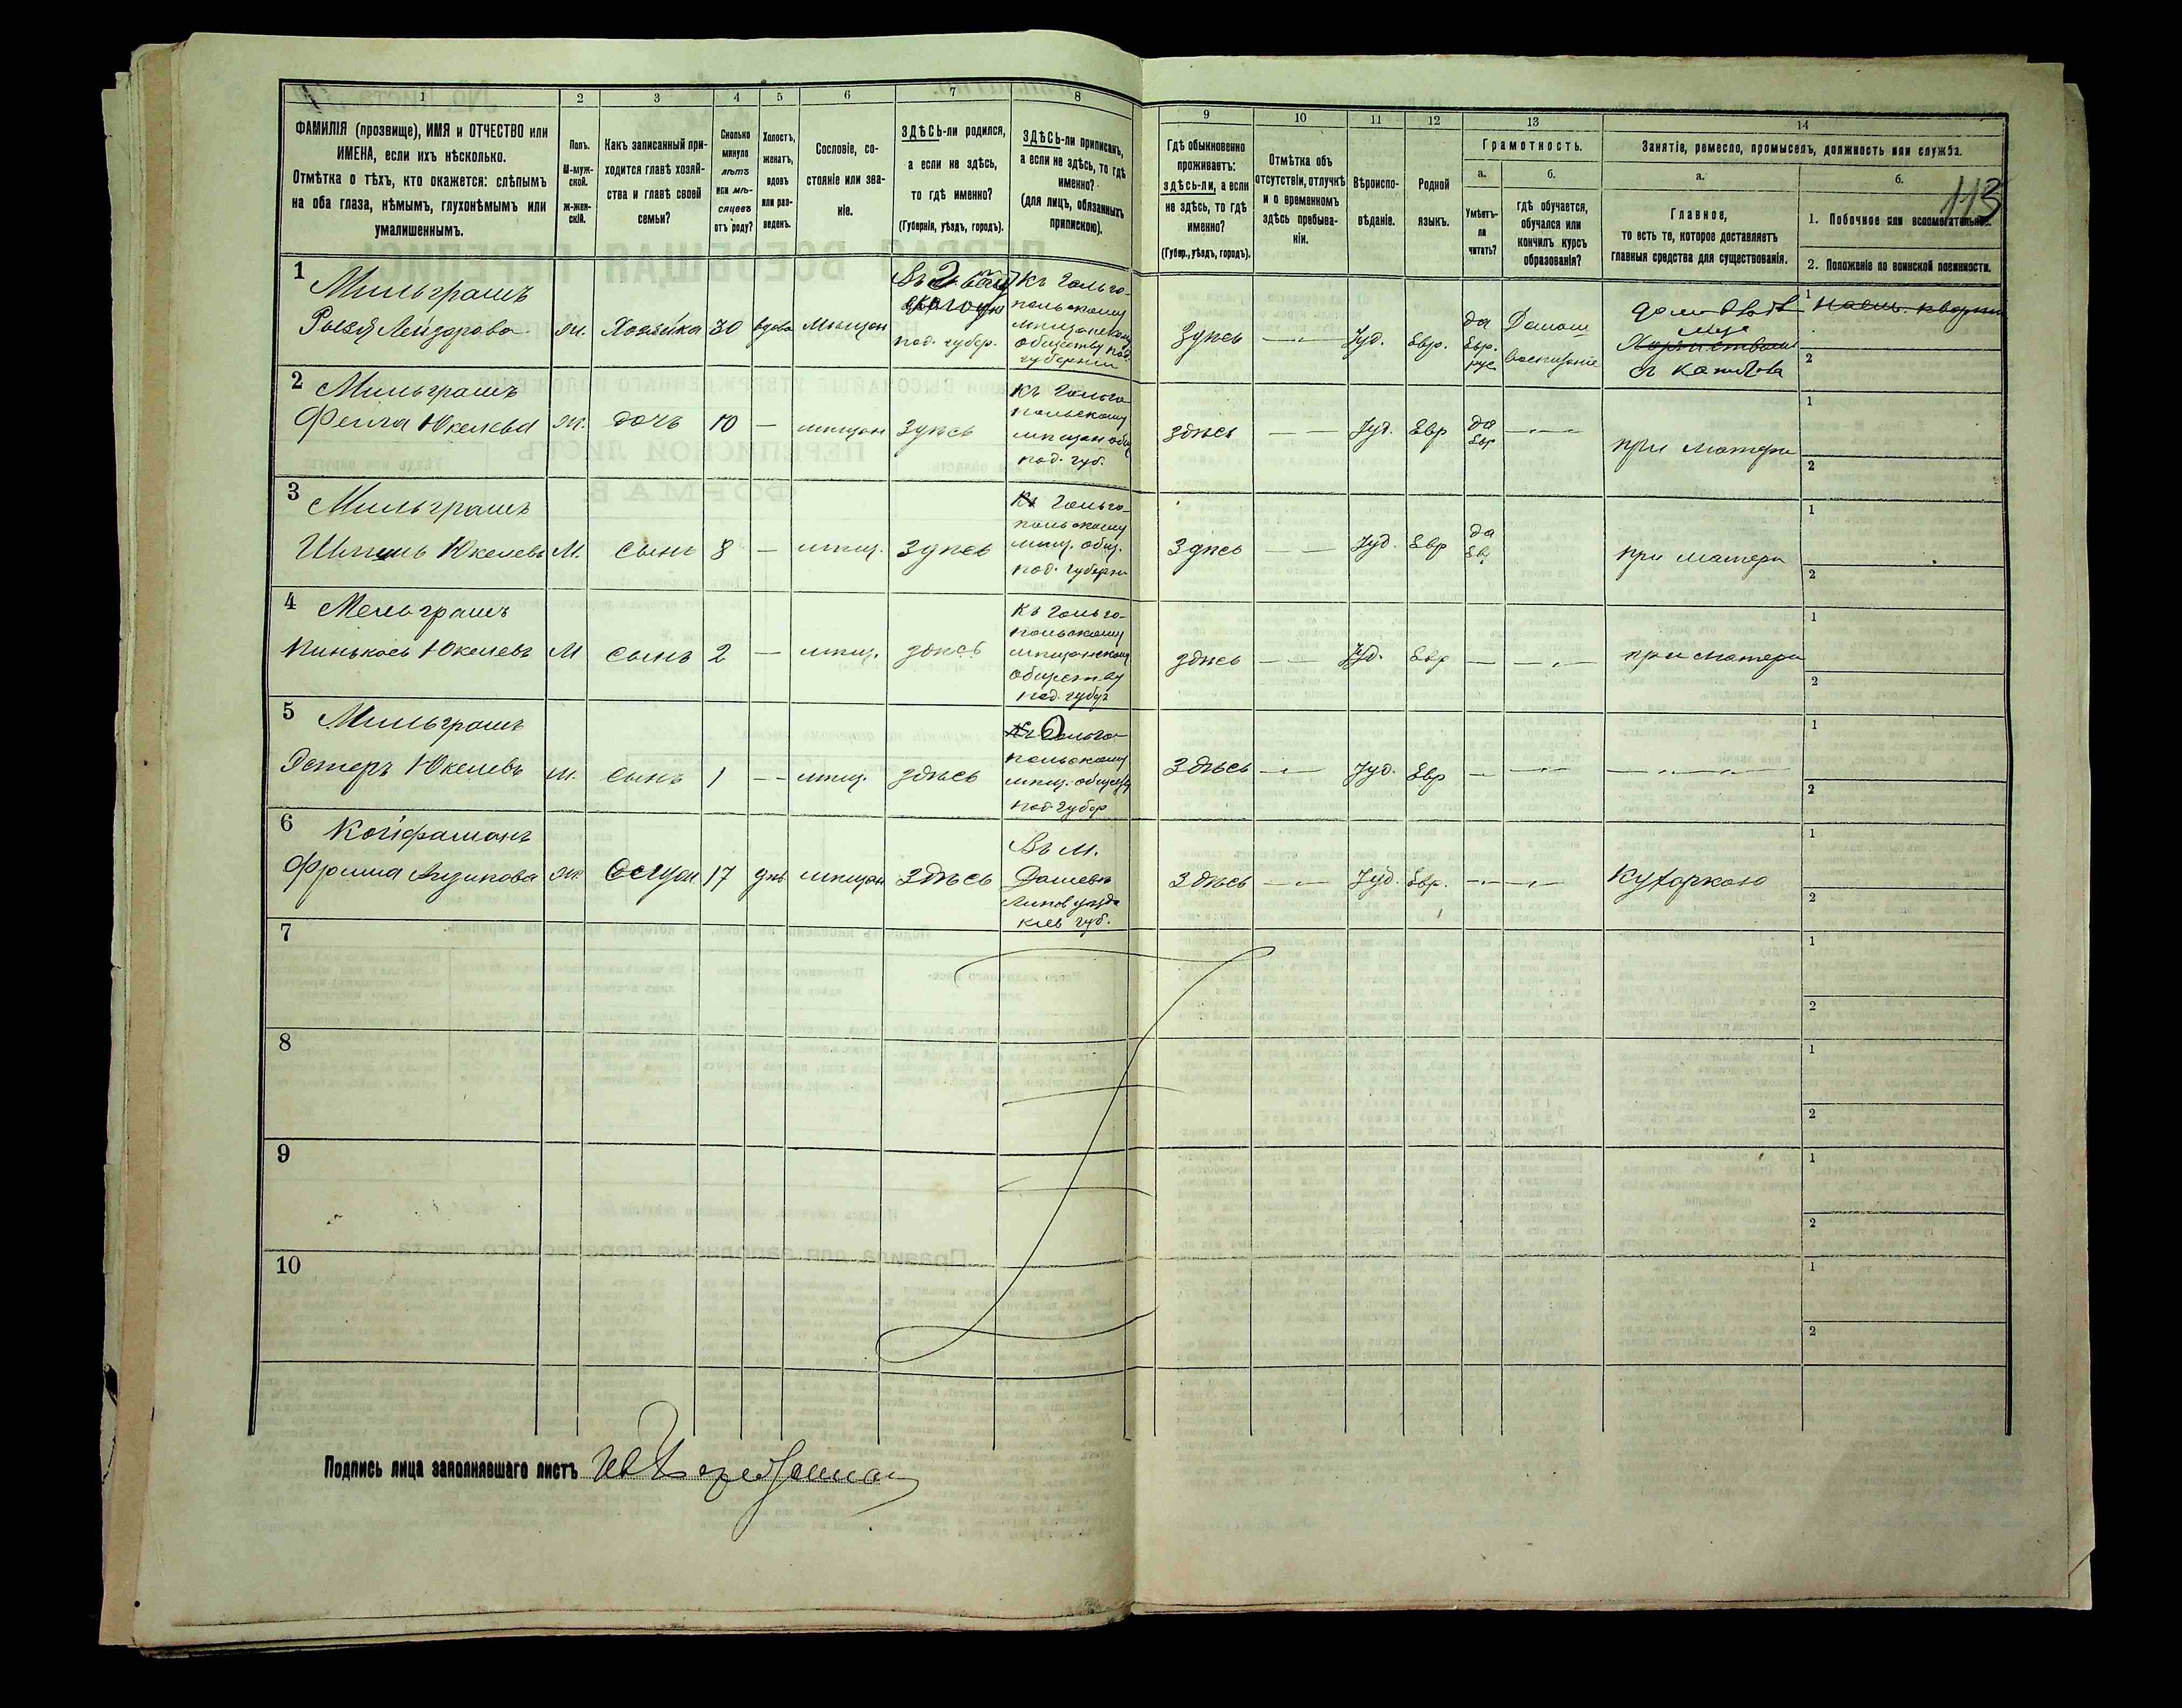 113
1 2 3 4 5 6 7 8 9 10 11 12 13 14
ФАМИЛІЯ (прозвище), ИМЯ и ОТЧЕСТВО или
ИМЕНА, если ихъ нѣсколько.
Отмѣтка о тѣхъ, кто окажется: слѣпымъ
на оба глаза, нѣмымъ, глухонѣмымъ или
умалишеннымъ.
Полъ.
М-муж-
ской.
Ж-жен-
скій.
Какъ записанный при-
ходится главѣ хозяй-
ства и главѣ своей
семьи?
Сколько
минуло
лѣтъ
или мѣ-
сяцевъ
отъ роду?
Холостъ,
женатъ,
вдовъ
или раз-
веденъ.
Сословіе, со-
стояніе или зва-
ніе.
ЗДѢСЬ-ли родился,
а если не здѣсь,
то гдѣ именно?
(Губернія, уѣздъ, городъ).
ЗДѢСЬ-ли приписанъ,
а если не здѣсь, то гдѣ
именно?
(для лицъ, обязанныхъ
припискою).
Гдѣ обыкновенно
проживаетъ:
здѣсь-ли, а если
не здѣсь, то гдѣ
именно?
(Губер., уѣздъ, городъ).
Отмѣтка объ
отсутствіи, отлучкѣ
и о временномъ
здѣсь пребыва-
ніи.
Вѣроиспо-
вѣданіе.
Родной
языкъ.
Грамотность.
а.
Умѣетъ-
ли
читать?
б.
гдѣ обучается,
обучался или
кончилъ курсъ
образованія?
Занятіе, ремесло, промыселъ, должность или служба.
а.
Главное,
то есть то, которое доставляетъ
главныя средства для существованія.
б.
1. Побочное или вспомогательное.
2. Положеніе по воинской повинности.
1
Мильграмъ
ж. Хозяйка 30 вдова мѣщан
под. губер.
Къ Гольго-
польскому
мѣщанскому
обществу под.
губерніи
Здѣсь Іуд. Евр.
да
Евр.
рус.
Домаш
воспитаніе
1
2
2 Мильграмъ
ж. дочь 10 — мѣщан Здѣсь
Къ Гольго-
польскому
мѣщан общ
под. губ.
здѣсь — — Іуд. Евр
да
Евр
при матери
1
2
3 Мильграмъ
М. сынъ 8 — мѣщ. Здѣсь
Къ Гольго-
польскому
мѣщ. общ.
под. губерн
Здѣсь — — Іуд. Евр
да
Ев
при матери
1
2
4 Мельграмъ
Пинькось Юкелевъ М сынъ 2 — мѣщ. здѣсь
Къ Гольго-
польскому
мѣщанскому
обществу
под. губер
здѣсь — — Іуд. Евр — — при матери
1
2
5 Мильграмъ
Эстеръ Юкелевъ м. сынъ 1 — — мѣщ. здѣсь
польскому
мѣщ. обществу
под. губер
Здѣсь — — Іуд. Евр — —
1
2
6 Койфманъ
ж. 17 дѣв мѣщан Здѣсь
Въ м.
Дашевъ
Липов уѣзда
кіев губ.
Здѣсь — — Іуд. Евр. — — Кухаркою
1
2
7
1
2
8
1
2
9
1
2
10
1
2
Подпись лица заполнявшаго листъ